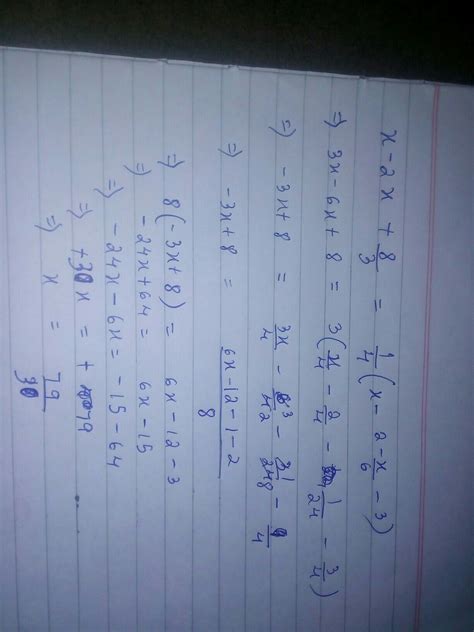 x - 2x + 8/3 = 1/4 (x - 2 - x/6 - 3)
⇒ 3x - 6x + 8 = 3(x/4 - 2/4 - 1/24 - 3/4)
⇒ -3x + 8 = 3x/4 - 3/2 - 1/8 - 9/4
⇒ -3x + 8 = 6x - 12 - 1 - 2/8
⇒ 8(-3x + 8) = 6x - 12 - 3
⇒ -24x + 64 = 6x - 15
⇒ -24x - 6x = -15 - 64
⇒ +30x = +79
⇒ x = 79/30